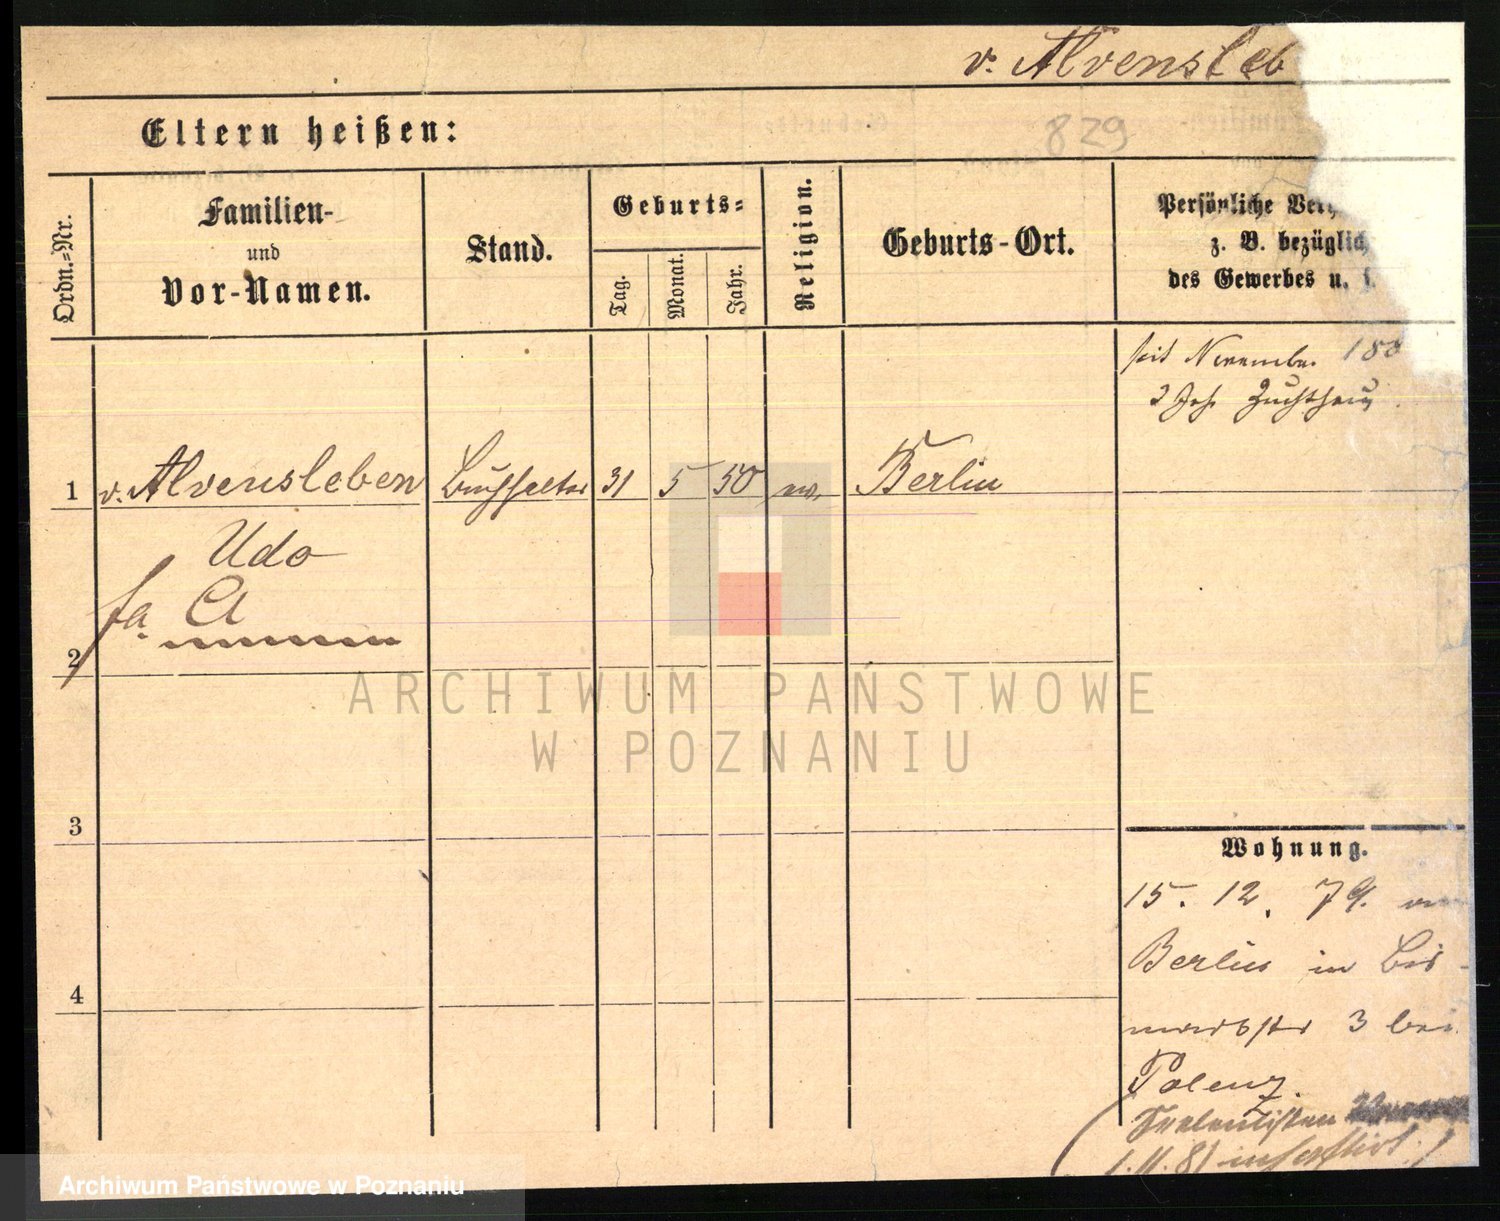 v. Alvensleb
Eltern heißen:
829
Ordn.=Nr.
Familien-
und
Vor-Namen.
Stand.
Geburts=
Tag.
Monat.
Jahr.
Religion.
Geburts-Ort.
Persönliche Ver
z. B. bezüglich
des Gewerbes u.
seit November 188
2 Jah Zuchthaus
1 v. Alvensleben Buchhalter 31 5 50 ev. Berlin
Udo
fa. A
2
3
4
Wohnung.
15. 12. 79. von
Berlin in Bis-
marckstr 3 bei
Polenz.
Seelenlisten
1. 11. 81
ARCHIWUM PAŃSTWOWE
W POZNANIU
Archiwum Państwowe w Poznaniu